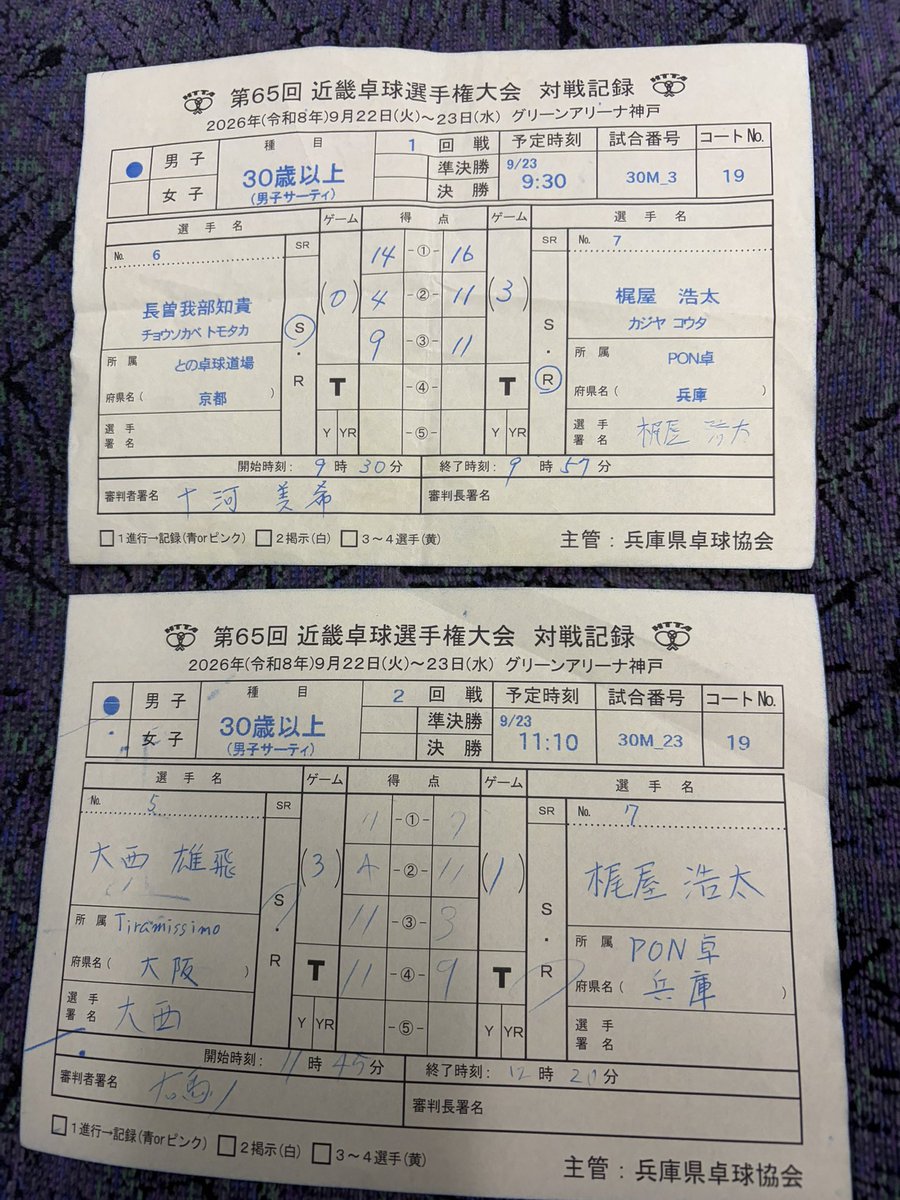 HTTA 第65回 近畿卓球選手権大会 対戦記録 HTTA
2026年(令和8年)9月22日(火)～23日(水) グリーンアリーナ神戸
男子
女子
種目
30歳以上
(男子サーティ)
1 回戦
準決勝
決勝
予定時刻
9/23
9:30
試合番号
30M_3
コートNo.
19
選手名 ゲーム 得点 ゲーム 選手名
No. 6 SR SR No. 7
長曽我部知貴
チョウソカベ トモタカ
所属 との卓球道場
府県名( 京都 )
選手署名
S・R
(0) (3)
14 -①- 16
4 -②- 11
9 -③- 11
T -④- T
Y YR -⑤- Y YR
S・R
梶屋 浩太
カジヤ コウタ
所属 PON卓
府県名( 兵庫 )
選手署名 梶屋 浩太
開始時刻: 9時30分 終了時刻: 9時57分
審判者署名 十河 美希 審判長署名
1進行→記録(青orピンク) 2掲示(白) 3～4選手(黄) 主管:兵庫県卓球協会
HTTA 第65回 近畿卓球選手権大会 対戦記録 HTTA
2026年(令和8年)9月22日(火)～23日(水) グリーンアリーナ神戸
男子
女子
種目
30歳以上
(男子サーティ)
2 回戦
準決勝
決勝
予定時刻
9/23
11:10
試合番号
30M_23
コートNo.
19
選手名 ゲーム 得点 ゲーム 選手名
No. 5 SR SR No. 7
大西 雄飛
所属 Tiramissimo
府県名( 大阪 )
選手署名 大西
S・R
(3) (1)
11 -①- 7
-②- 11
11 -③- 3
T 11 -④- 9 T
Y YR -⑤- Y YR
S・R
梶屋 浩太
所属 PON卓
府県名( 兵庫 )
選手署名
開始時刻: 11時45分 終了時刻: 12時20分
審判者署名 審判長署名
1進行→記録(青orピンク) 2掲示(白) 3～4選手(黄) 主管:兵庫県卓球協会